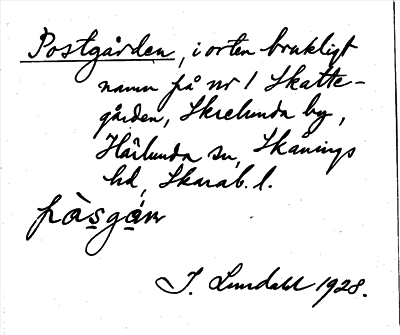 Postgården, i orten brukligt
namn på nr 1 Skatte-
gården, Skrelunda by,
Härlunda sn, Skånings
hd, Skarab. l.
pås̱gá̱ɳ
I. Lundahl 1928.